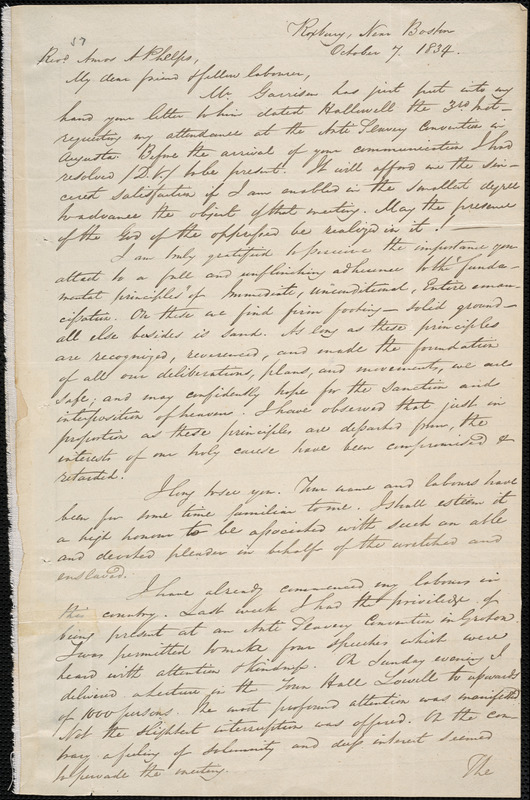 57
Roxbury, Near Boston
October 7. 1834.
Revd. Amos A Phelps,
My dear friend & fellow labourer,
Mr. Garrison has just put into my
hand your letter to him dated Hallowell the 3rd Inst-
requesting my attendance at the Anti Slavery Convention in
Augusta. Before the arrival of your communication I had
resolved (D.V.) to be present. It will afford me the sin-
cerest satisfaction if I am enabled in the smallest degree
to advance the object of that meeting. May the presence
of the God of the oppressed be realized in it! —
I am truly gratified to perceive the importance you
attach to a full and unflinching adherence to the "funda-
mental principles" of Immediate, unconditional, Entire eman-
cipation. On these we find firm footing — solid ground —
all else besides is sand. As long as these principles
are recognized, reverenced, and made the foundation
of all our deliberations, plans, and movements, we are
safe; and may confidently hope for the sanction and
interposition of heaven. I have observed that just in
proportion as these principles are departed from, the
interests of our holy cause have been compromised &
retarded.
I long to see you. Your name and labours have
been for some time familiar to me. I shall esteem it
a high honour to be associated with such an able
and devoted pleader in behalf of the wretched and
enslaved.
I have already commenced my labours in
this country. Last week I had the priviledge of
being present at an Anti Slavery Convention in Groton.
I was permitted to make four speeches which were
heard with attention & kindness. On Sunday evening I
delivered a lecture in the Town Hall Lowell to upwards
of 1000 persons. The most profound attention was manifested
Not the slightest interruption was offered. On the con-
trary a feeling of solemnity and deep interest seemed
to pervade the meeting.
The